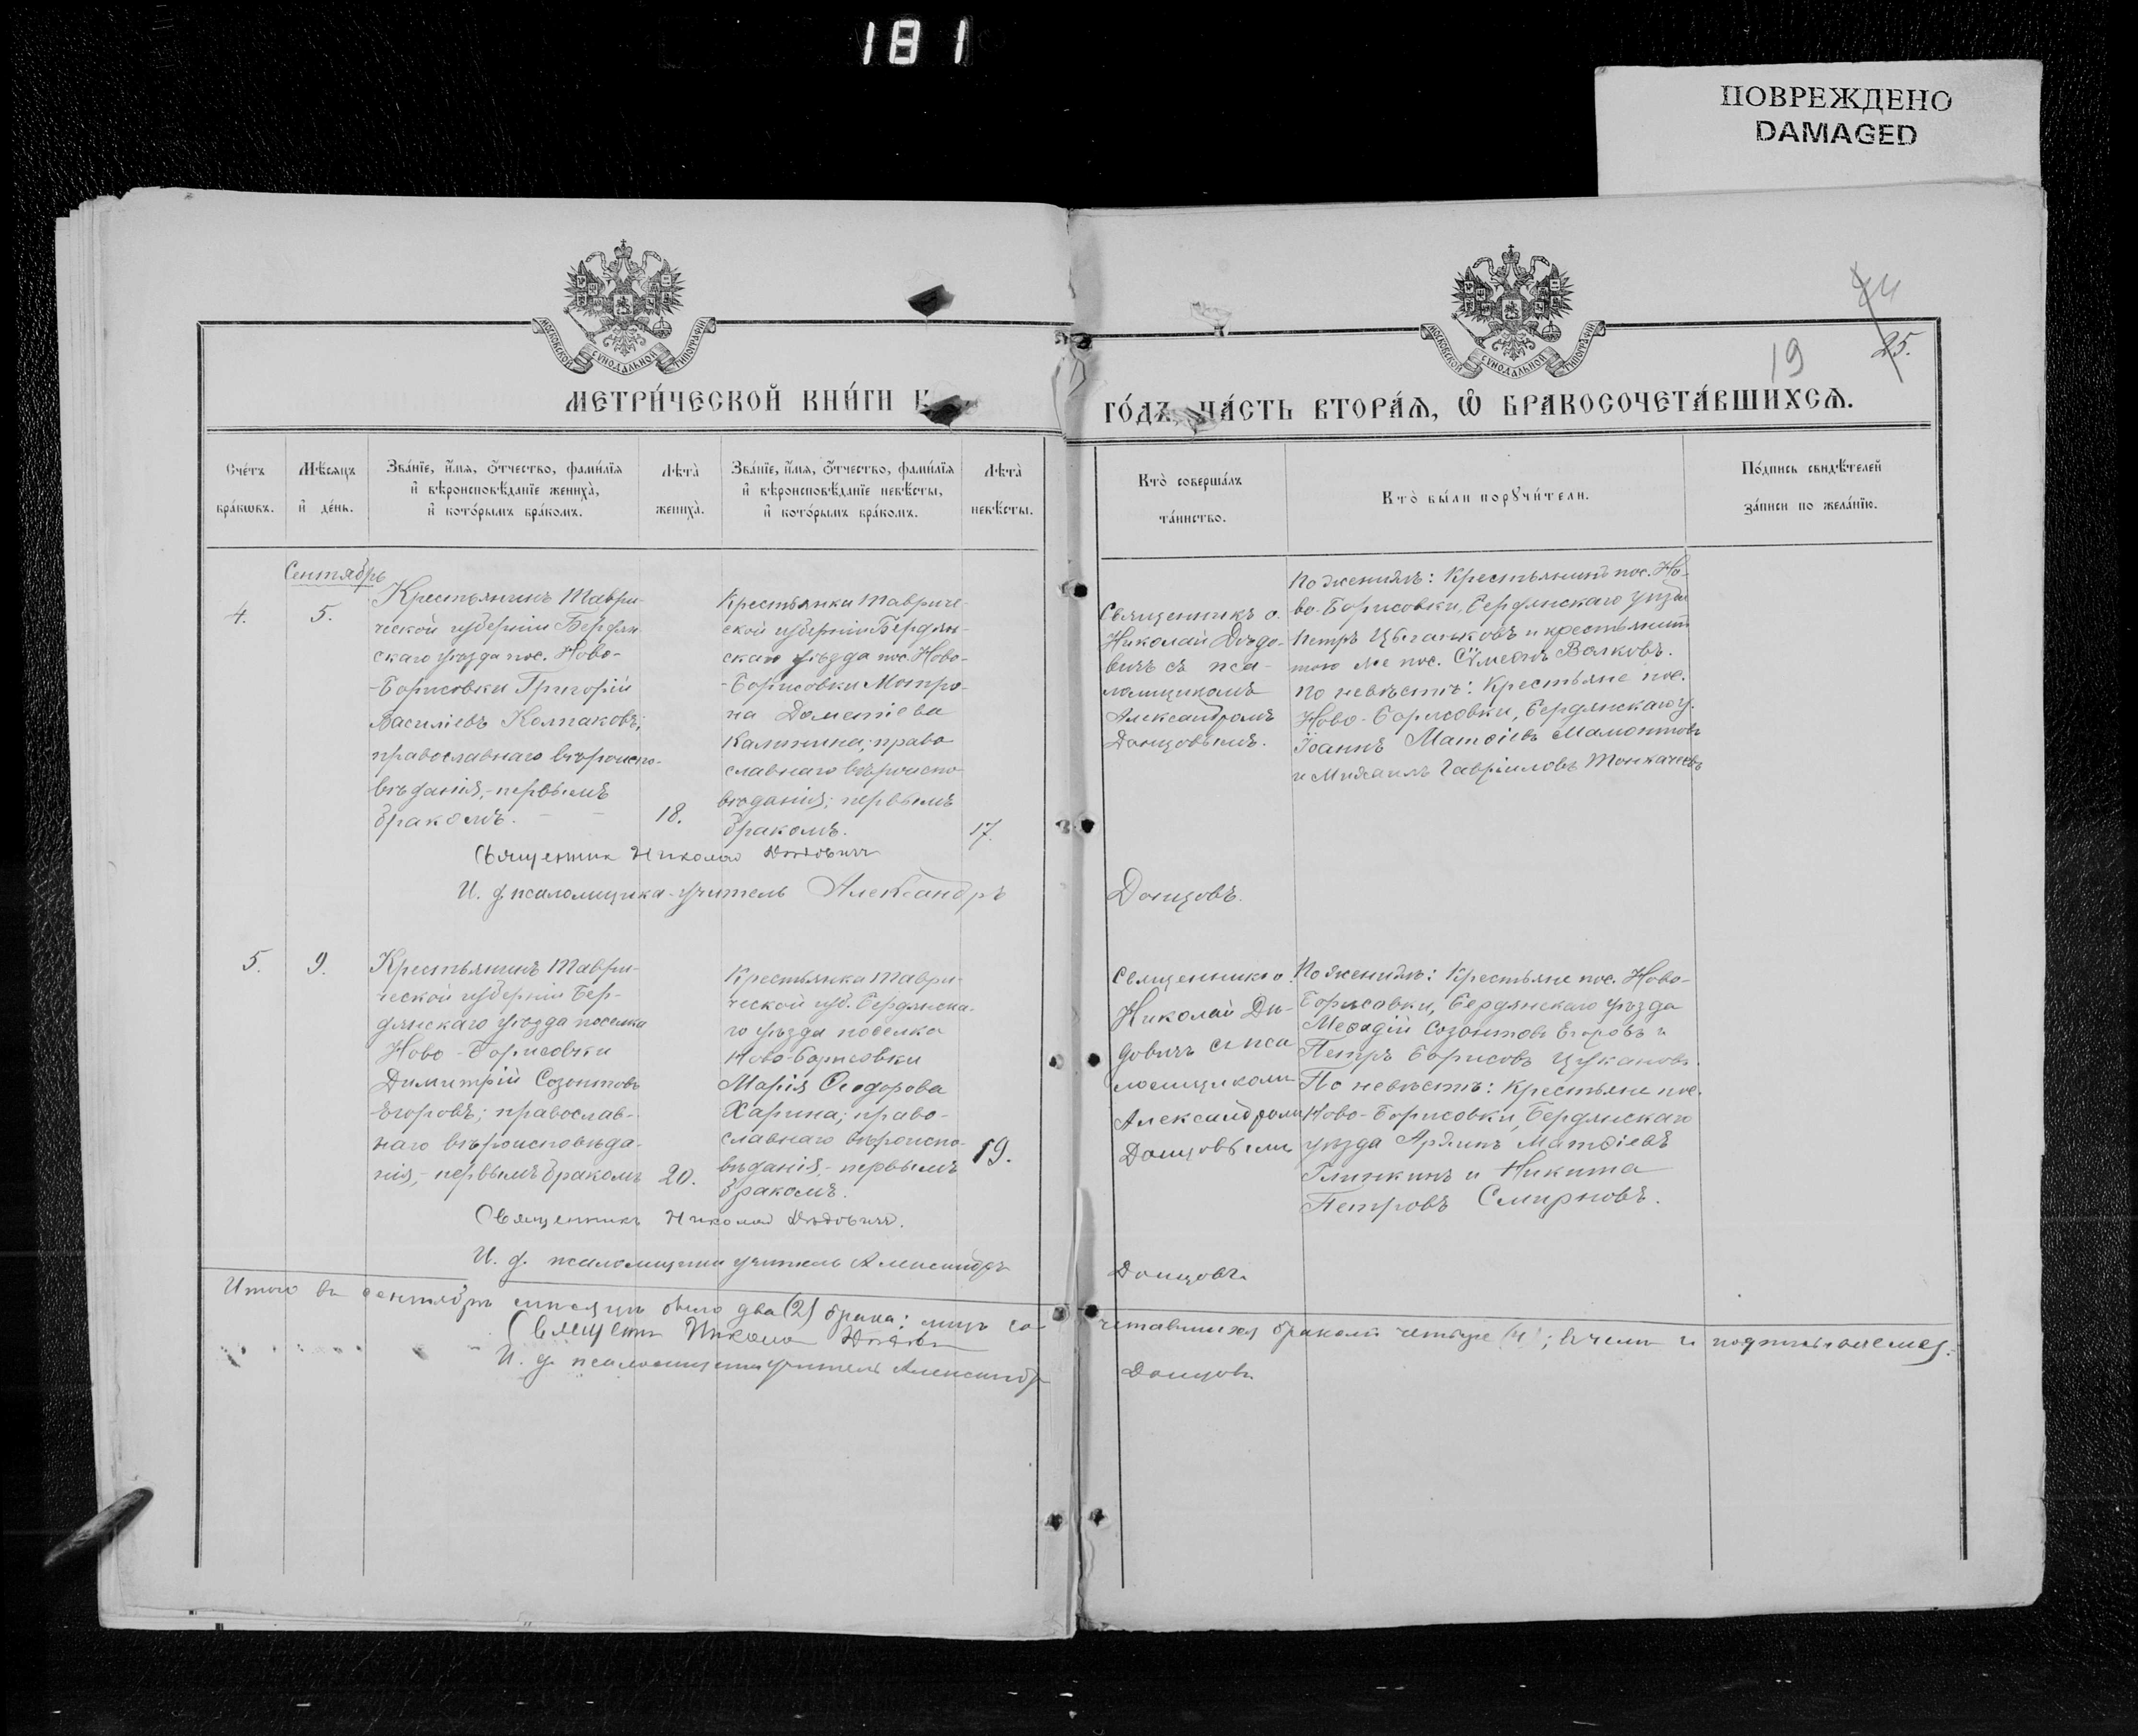 181
ПОВРЕЖДЕНО
DAMAGED
МОСКОВСКОЙ СѴНОДАЛЬНОЙ ТИПОГРАФІИ
МОСКОВСКОЙ СѴНОДАЛЬНОЙ ТИПОГРАФІИ
19
25.
МЕТРИ́ЧЕСКОЙ КНИ́ГИ
ГО́ДЪ, ЧА́СТЬ ВТОРА́Я, Ѿ БРАКОСОЧЕТА́ВШИХСЯ.
Сче́тъ
бра́кѡвъ.
Мѣ́сяцъ
и҆ де́нь.
Зва́нїе, и҆́мя, ѻ҆́тчество, фами́лїя
и҆ вѣроисповѣ́данїе жениха̀,
и҆ кото́рымъ бра́комъ.
Лѣ́та
жениха̀.
Зва́нїе, и҆́мя, ѻ҆́тчество, фами́лїя
и҆ вѣроисповѣ́данїе невѣ́сты,
и҆ кото́рымъ бра́комъ.
Лѣ́та
невѣ́сты.
Кто̀ соверша́лъ
та́инство.
Кто̀ бы́ли порꙋчи́тели.
По́дпись свидѣ́телей
за́писи по жела́нїю.
Сентябрь
4.
5.
Крестьянинъ Таври-
ческой губерніи Бердян-
скаго уѣзда пос. Ново-
-Борисовки Григорій
Василіевъ Колпаковъ;
православнаго вѣроиспо-
вѣданія,- первымъ
бракомъ.
18.
Крестьянка Тавриче-
ской губерніи Бердян-
скаго уѣзда пос. Ново-
-Борисовки Матро-
на Дометіева
Калинина; право
славнаго вѣроиспо
вѣданія; первымъ
бракомъ.
17.
Священникъ о.
Николай Дѣдо-
вичъ съ пса-
ломщикомъ
Александромъ
Донцовымъ.
По женихѣ: Крестьянинъ пос. Но-
во-Борисовки, Бердянскаго уѣзда
Петръ Цыганковъ и крестьянинъ
того же пос. Сѵмеонъ Волковъ.
По невѣстѣ: Крестьяне пос.
Ново-Борисовки, Бердянскаго у.
Іоаннъ Матѳіевъ Мамонтовъ
и Михаилъ Гавріиловъ Толкачевъ
Священник Николай Дѣдовичъ
И. д. псаломщика-учитель Александръ
Донцовъ.
5.
9.
Крестьянинъ Таври-
ческой губерніи Бер-
дянскаго уѣзда поселка
Ново-Борисовки
Димитрій Созонтовъ
Егоровъ; православ-
наго вѣроисповѣда-
нія,- первымъ бракомъ
20.
Крестьянка Таври-
ческой губ. Бердянска-
го уѣзда поселка
Ново-Борисовки
Марія Ѳеодорова
Харина; право-
славнаго вѣроиспо-
вѣданія,- первымъ
бракомъ.
19.
Священникъ о.
Николай Дѣ-
довичъ съ пса
ломщикомъ
Александромъ
Донцовымъ
По женихѣ: Крестьяне пос. Ново-
Борисовки, Бердянскаго уѣзда
Меѳодій Созонтовъ Егоровъ и
Петръ Борисовъ Цукановъ.
По невѣстѣ: Крестьяне пос.
Ново-Борисовки, Бердянскаго
уѣзда Матѳіевъ
Глинкинъ и Никита
Петровъ Смирновъ.
Священникъ Николай Дѣдовичъ.
И. д. псаломщика учитель Александръ
Донцовъ
Итого въ сентябрѣ мѣсяцѣ было два (2) брака: лицъ со-
четавшихся бракомъ четыре (4); въ чемъ и подписываемся:
Священникъ Николай Дѣдовичъ
И. д. псаломщика учитель Александръ
Донцовъ